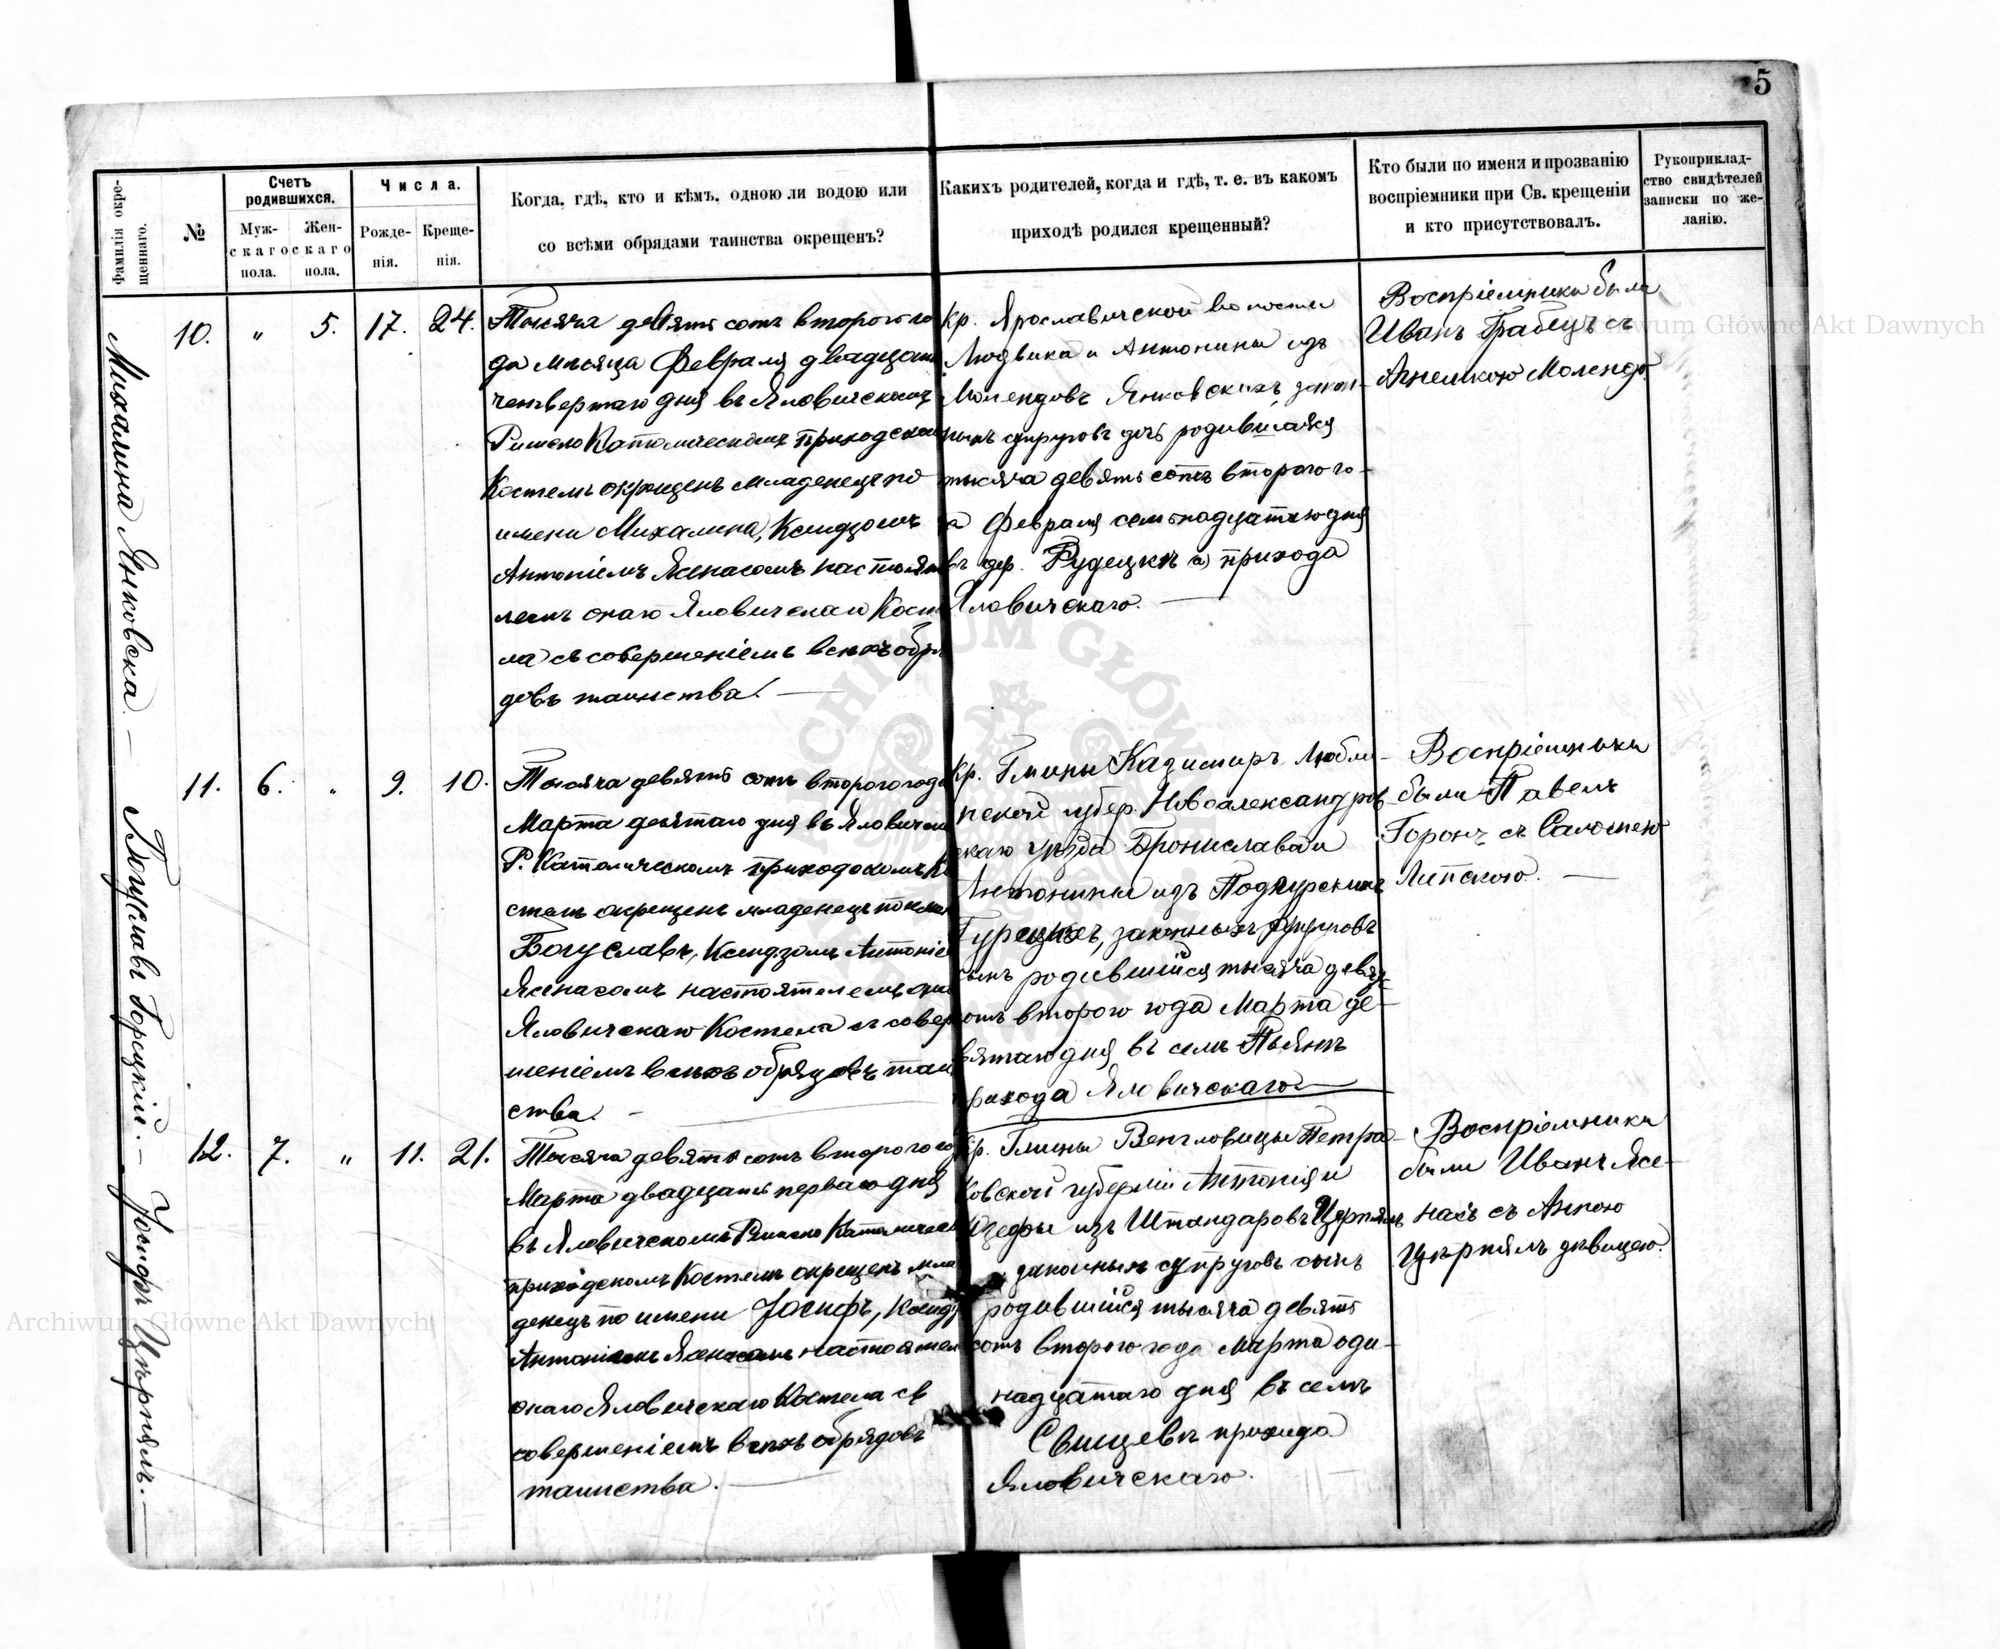 5
Фамилія окре-
щеннаго.
№
Счетъ
родившихся.
Муж-
скаго
пола.
Жен-
скаго
пола.
Числа.
Рожде-
нія.
Креще-
нія.
Когда, гдѣ, кто и кѣмъ, одною ли водою или
со всѣми обрядами таинства окрещенъ?
Какихъ родителей, когда и гдѣ, т. е. въ какомъ
приходѣ родился крещенный?
Кто были по имени и прозванію
воспріемники при Св. крещеніи
и кто присутствовалъ.
Рукоприклад-
ство свидѣтелей
записки по же-
ланію.
Михалина Янковска. —
10. " 5. 17. 24.
Тысяча девять сотъ второго го
да мѣсяца Февраля двадцать
четвертаго дня въ Яловичскомъ
Римско Католическомъ приходском
Костелѣ окрещенъ младенецъ по
имени Михалина, Ксендзомъ
Антоніемъ Ясенасомъ настояте
лемъ онаго Яловичскаго Косте
ла съ совершеніемъ всѣхъ обря
довъ таинства. —
Кр. Ярославичской волости
Людвика и Антонины изъ
Молендовъ Янковскихъ, закон-
ныхъ супруговъ дочь родившаяся
тысяча девять сотъ второго го-
а Февраля семьнадцатаго дня
въ дер. Рудецкѣ прихода
Яловичскаго. —
Воспріемники были
Иванъ Грабецъ съ
Агнешкою Молендо.
Богуславъ Горецкій. —
11. 6. " 9. 10.
Тысяча девять сотъ второго года
Марта десятаго дня въ Яловичск
Р. Католическомъ приходскомъ Ко
стелѣ окрещенъ младенецъ по имени
Богуславъ, Ксендзомъ Антоніе
Ясенасомъ настоятелемъ она
Яловичскаго Костела съ совер
шеніемъ всѣхъ обрядовъ таин
ства. —
Кр. Гмины Казимиръ Любли-
нской губер. Новоалександров
скаго уѣзда Бронислава и
Антонины изъ
законныхъ супруговъ
сынъ родившійся тысяча девять
сотъ второго года Марта де-
вятаго дня въ селѣ Пьянѣ
прихода Яловичскаго —
Воспріемники
были Павелъ
Горонъ съ Саломею
Липскою. —
Іосифъ Цѣрпялъ. —
12. 7. " 11. 21.
Тысяча девять сотъ второго го
Марта двадцать перваго дня
въ Яловичскомъ Римско Католическ
приходскомъ Костелѣ окрещенъ мла
денецъ по имени Іосифъ, Ксендз
Антоніемъ Ясенасомъ настоятел
онаго Яловичскаго Костела съ
совершеніемъ всѣхъ обрядовъ
таинства. —
Кр. Гмины Венгловицы Петра-
ковской губерніи Антонія и
Юзефы изъ Штандаровъ Цѣрпялъ
законныхъ супруговъ сынъ
родившійся тысяча девять
сотъ второго года Марта оди-
надцатаго дня въ селѣ
Свищевѣ прихода
Яловичскаго.
Воспріемники
были Иванъ Ясе-
насъ съ Анною
Цѣрпялъ дѣвицею.
Archiwum Główne Akt Dawnych
Archiwum Główne Akt Dawnych
ARCHIWUM GŁÓWNE